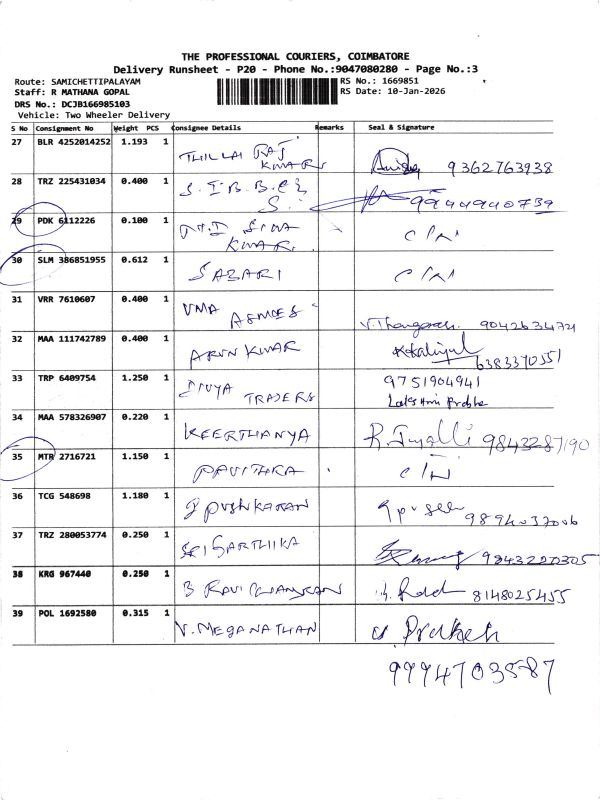 THE PROFESSIONAL COURIERS, COIMBATORE
Delivery Runsheet - P20 - Phone No.:9047080280 - Page No.:3
Route: SAMICHETTIPALAYAM RS No.: 1669851
Staff: R MATHANA GOPAL RS Date: 10-Jan-2026
DRS No.: DCJB166985103
Vehicle: Two Wheeler Delivery
S No Consignment No Weight PCS Consignee Details Remarks Seal & Signature
27 BLR 4252014252 1.193 1 THILLAI RAJ KUMAR 9362763938
28 TRZ 225431034 0.400 1 9944940739
29 PDK 6112226 0.100 1 SIVA KUMAR
30 SLM 386851955 0.612 1 SABARI
31 VRR 7610607 0.400 1 UMA V. Thangaraj 9042634721
32 MAA 111742789 0.400 1 ARUN KUMAR 6383370551
33 TRP 6409754 1.250 1 DIVYA TRADERS 9751904941
Lakshmi Prabha
34 MAA 578326907 0.220 1 KEERTHANYA 9843287190
35 MTR 2716721 1.150 1 PAVITHRA
36 TCG 548698 1.180 1 PUSHKARAN 9894037006
37 TRZ 280053774 0.250 1 SRI SARTHIKA 9843220305
38 KRG 967440 0.250 1 B RAVI CHANDRAN 8148025455
39 POL 1692580 0.315 1 V. MEGANATHAN
9994703587